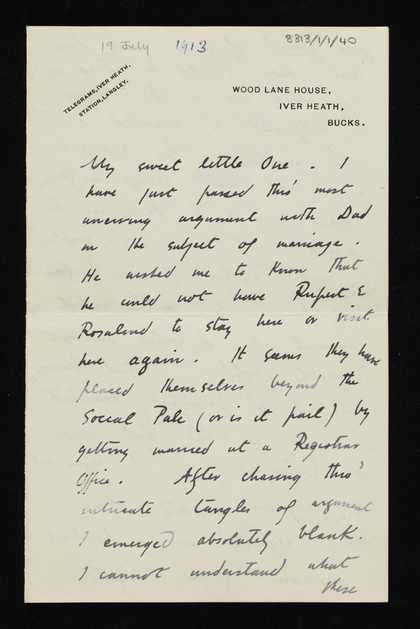 19 July 1913
8313/1/1/40
TELEGRAMS, IVER HEATH.
STATION, LANGLEY.
WOOD LANE HOUSE,
IVER HEATH,
BUCKS.
My sweet little One. I
have just passed thro' most
unnerving argument with Dad
on the subject of marriage.
He wished me to know that
he could not have Rupert &
Rosalind to stay here or visit
here again. It seems they have
placed themselves beyond the
Social Pale (or is it pail) by
getting married at a Registrar
Office. After chasing thro'
intricate tangles of argument
I emerged absolutely blank.
I cannot understand what
these